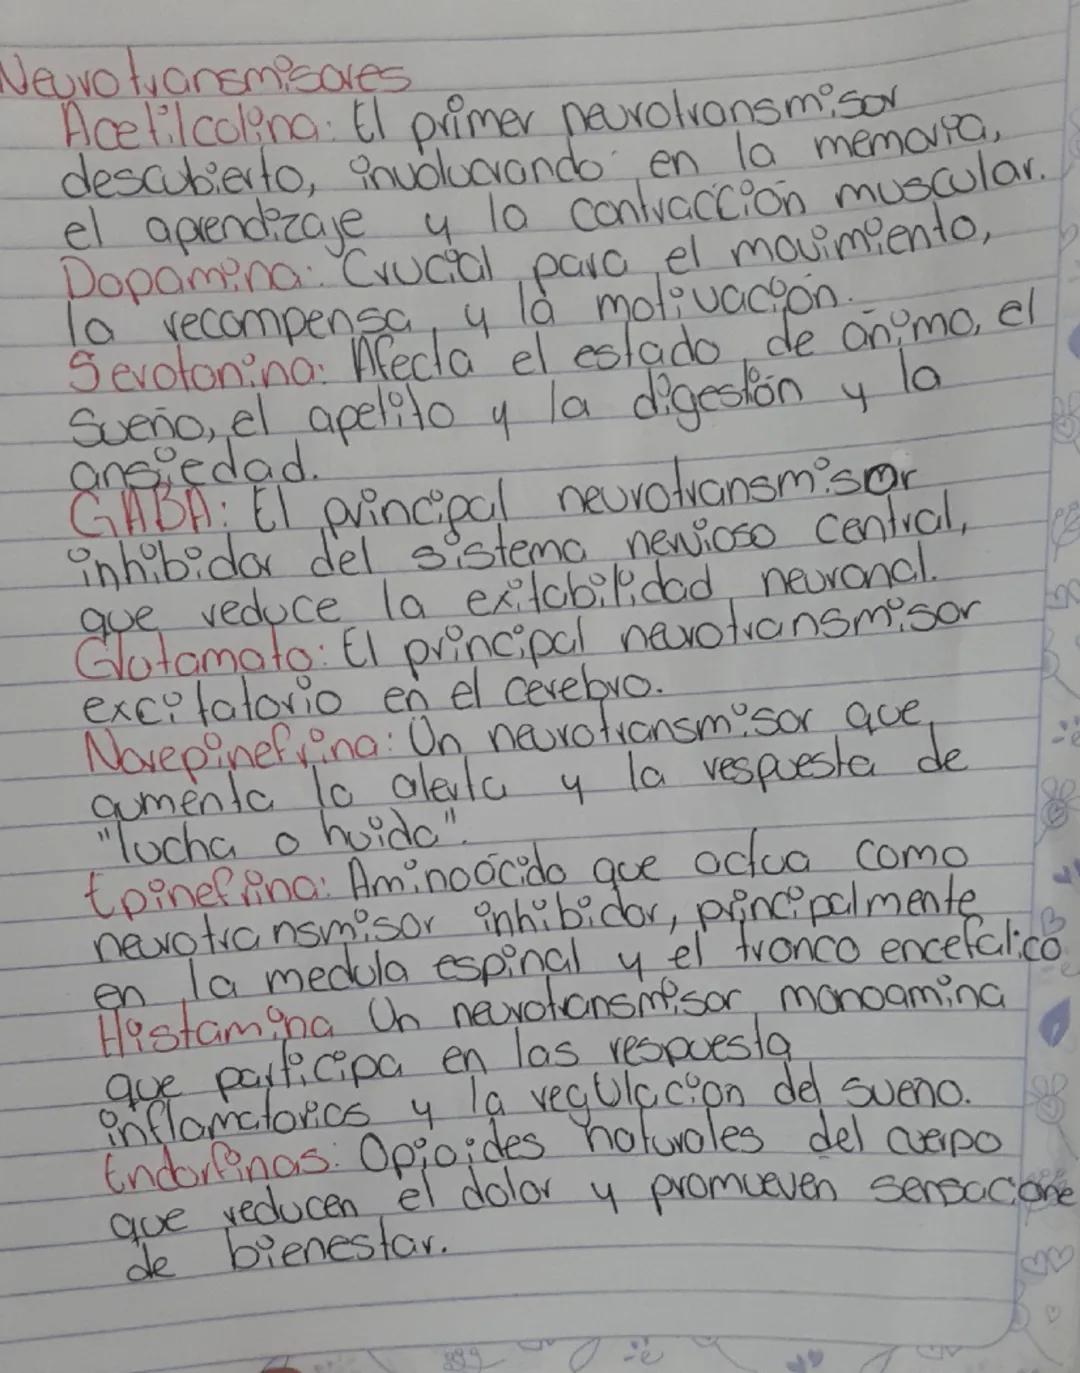 Neurotransmisores
Acetilcolina: El primer neurotransmisor
descubierto, involucrando en la memoria,
el aprendizaje y la contracción muscular.
Dopamina: Crucial para el movimiento,
la recompensa, y la motivación.
Serotonina: Afecta el estado de animo, el
sueño, el apetito y la digestión y la
ansiedad.
GABA: El principal neurotransmisor
inhibidor del sistema nervioso central,
que reduce la exitabilidad neuronal.
Glutamato: El principal neurotransmisor
excitatorio en el cerebro.
Norepinefrina: Un neurotransmisor que
aumenta la alerta y la respuesta de
"lucha o huida".
Epinefrina: Aminoácido que actua como
neurotransmisor inhibidor, principalmente
en la medula espinal y el tronco encefalico
Histamina Un neurotransmisor monoamina
que participa en las respuesta
inflamatorias y la regulacion del sueno.
Endorfinas: Opioides naturales del cuerpo
que reducen el dolor y promueven sensacione
de bienestar.